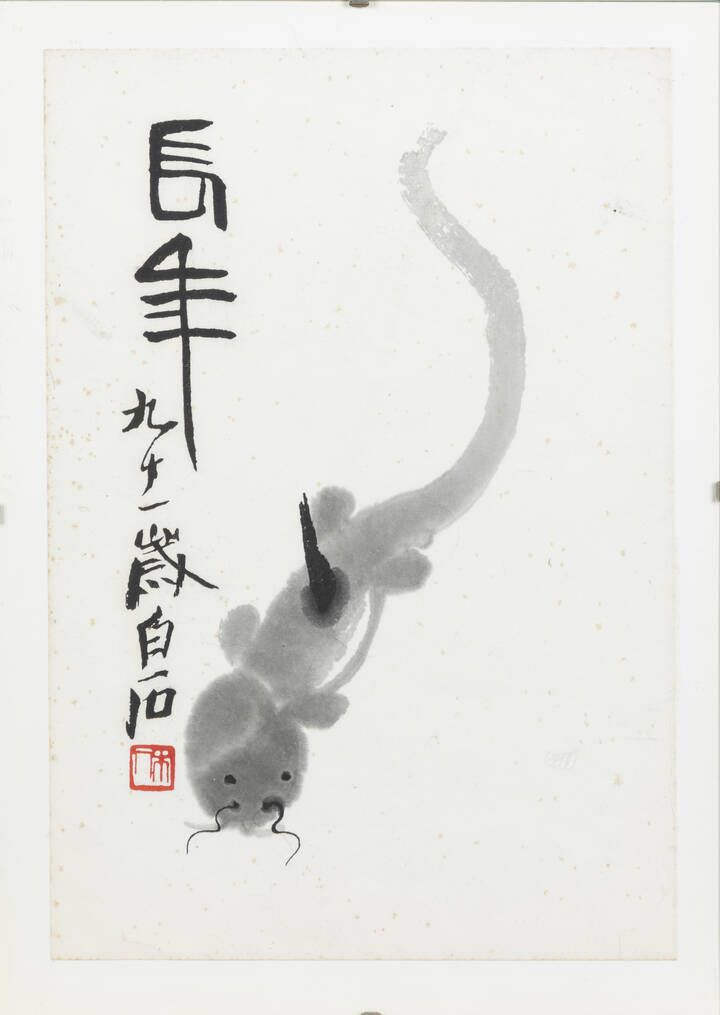 長年
九十一歲白石
木人